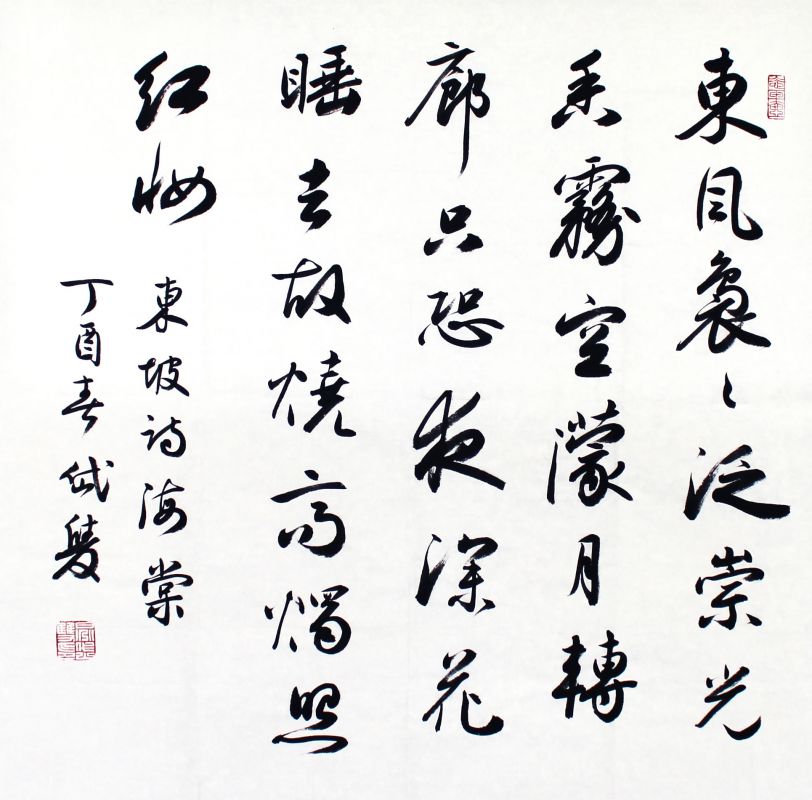 東風裊〻泛崇光
香霧空濛月轉
廊只恐夜深花
睡去故燒高燭照
紅妝
東坡詩海棠
丁酉春